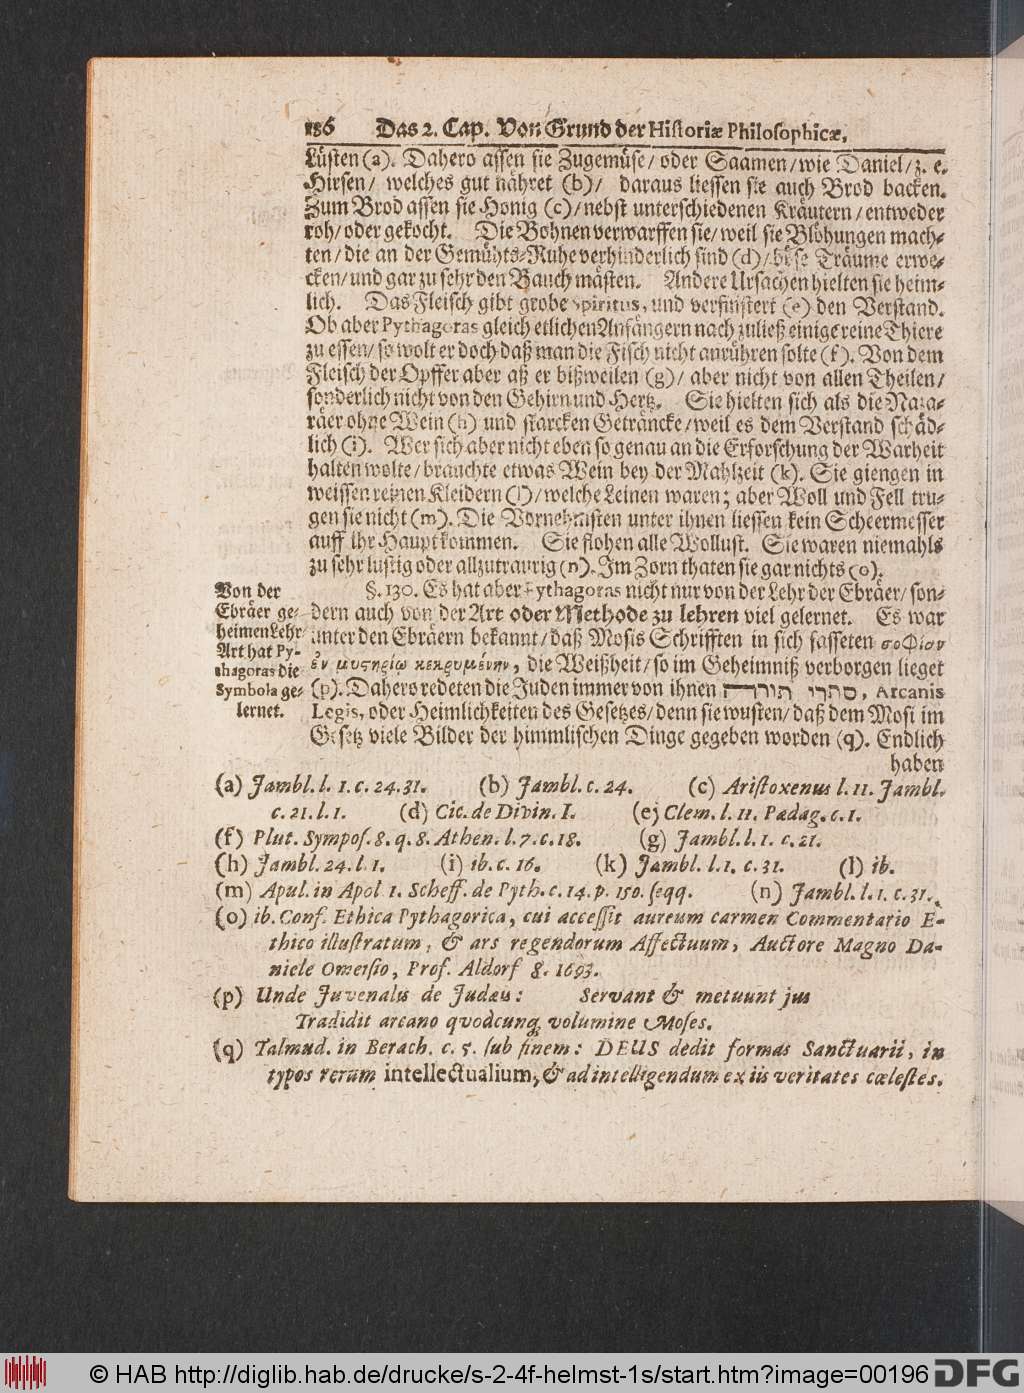 186 Das 2. Cap. Von Grund der Historiæ Philosophicæ,
Lüsten (a). Dahero assen sie Zugemüse/ oder Saamen/ wie Daniel/ z. e.
Hirsen/ welches gut nähret (b)/ daraus liessen sie auch Brod backen.
Zum Brod assen sie Honig (c)/ nebst unterschiedenen Kräutern/ entweder
roh/ oder gekocht. Die Bohnen verwarffen sie/ weil sie Blöhungen mach-
ten/ die an der Gemühts-Ruhe verhinderlich sind (d)/ böse Träume erwe-
cken/ und gar zu sehr den Bauch mästen. Andere Ursachen hielten sie heim-
lich. Das Fleisch gibt grobe Spiritus, und verfinstert (e) den Verstand.
Ob aber Pythagoras gleich etlichen Anfängern nach zuließ einige reine Thiere
zu essen/ so wolt er doch daß man die Fisch nicht anrühren solte (f). Von dem
Fleisch der Opffer aber aß er bißweilen (g)/ aber nicht von allen Theilen/
sonderlich nicht von den Gehirn und Hertz. Sie hielten sich als die Naza-
räer ohne Wein (h) und starcken Geträncke/ weil es dem Verstand schäd-
lich (i). Wer sich aber nicht eben so genau an die Erforschung der Warheit
halten wolte/ brauchte etwas Wein bey der Mahlzeit (k). Sie giengen in
weissen reinen Kleidern (l)/ welche Leinen waren; aber Woll und Fell tru-
gen sie nicht (m). Die Vornehmsten unter ihnen liessen kein Scheermesser
auff ihr Haupt kommen. Sie flohen alle Wollust. Sie waren niemahls
zu sehr lustig oder allzutraurig (n). Im Zorn thaten sie gar nichts (o).
Von der
Ebräer ge-
heimen Lehr-
Art hat Py-
thagoras die
Symbola ge-
lernet.
§. 130. Es hat aber Pythagoras nicht nur von der Lehr der Ebräer/ son-
dern auch von der Art oder Methode zu lehren viel gelernet. Es war
unter den Ebräern bekannt/ daß Mosis Schrifften in sich fasseten σοφίαν
ἐν μυςηρίῳ κεκρυμένην, die Weißheit/ so im Geheimniß verborgen lieget
(p). Dahero redeten die Juden immer von ihnen סתרי תורה, Arcanis
Legis, oder Heimlichkeiten des Gesetzes/ denn sie wusten/ daß dem Mosi im
Gesetz viele Bilder der himmlischen Dinge gegeben worden (q). Endlich
haben
(a) Jambl. l. 1. c. 24. 31. (b) Jambl. c. 24. (c) Aristoxenus l. 11. Jambl.
c. 21. l. 1. (d) Cic. de Divin. I. (e) Clem. l. 11. Pædag. c. 1.
(f) Plut. Sympos. 8. q. 8. Athen. l. 7. c. 18. (g) Jambl. l. 1. c. 21.
(h) Jambl. 24. l. 1. (i) ib. c. 16. (k) Jambl. l. 1. c. 31. (l) ib.
(m) Apul. in Apol 1. Scheff. de Pyth. c. 14. p. 150. seqq. (n) Jambl. l. 1. c. 31.
(o) ib. Conf. Ethica Pythagorica, cui accessit aureum carmen Commentario E-
thico illustratum, & ars regendorum Affectuum, Auctore Magno Da-
niele Omeisio, Prof. Aldorf 8. 1693.
(p) Unde Juvenalis de Judæis: Servant & metuunt jus
Tradidit arcano qvodcunq; volumine Moses.
(q) Talmud. in Berach. c. 5. sub finem: DEUS dedit formas Sanctuarii, in
typos rerum intellectualium, & ad intelligendum ex iis veritates cœlestes.
© HAB http://diglib.hab.de/drucke/s-2-4f-helmst-1s/start.htm?image=00196 DFG